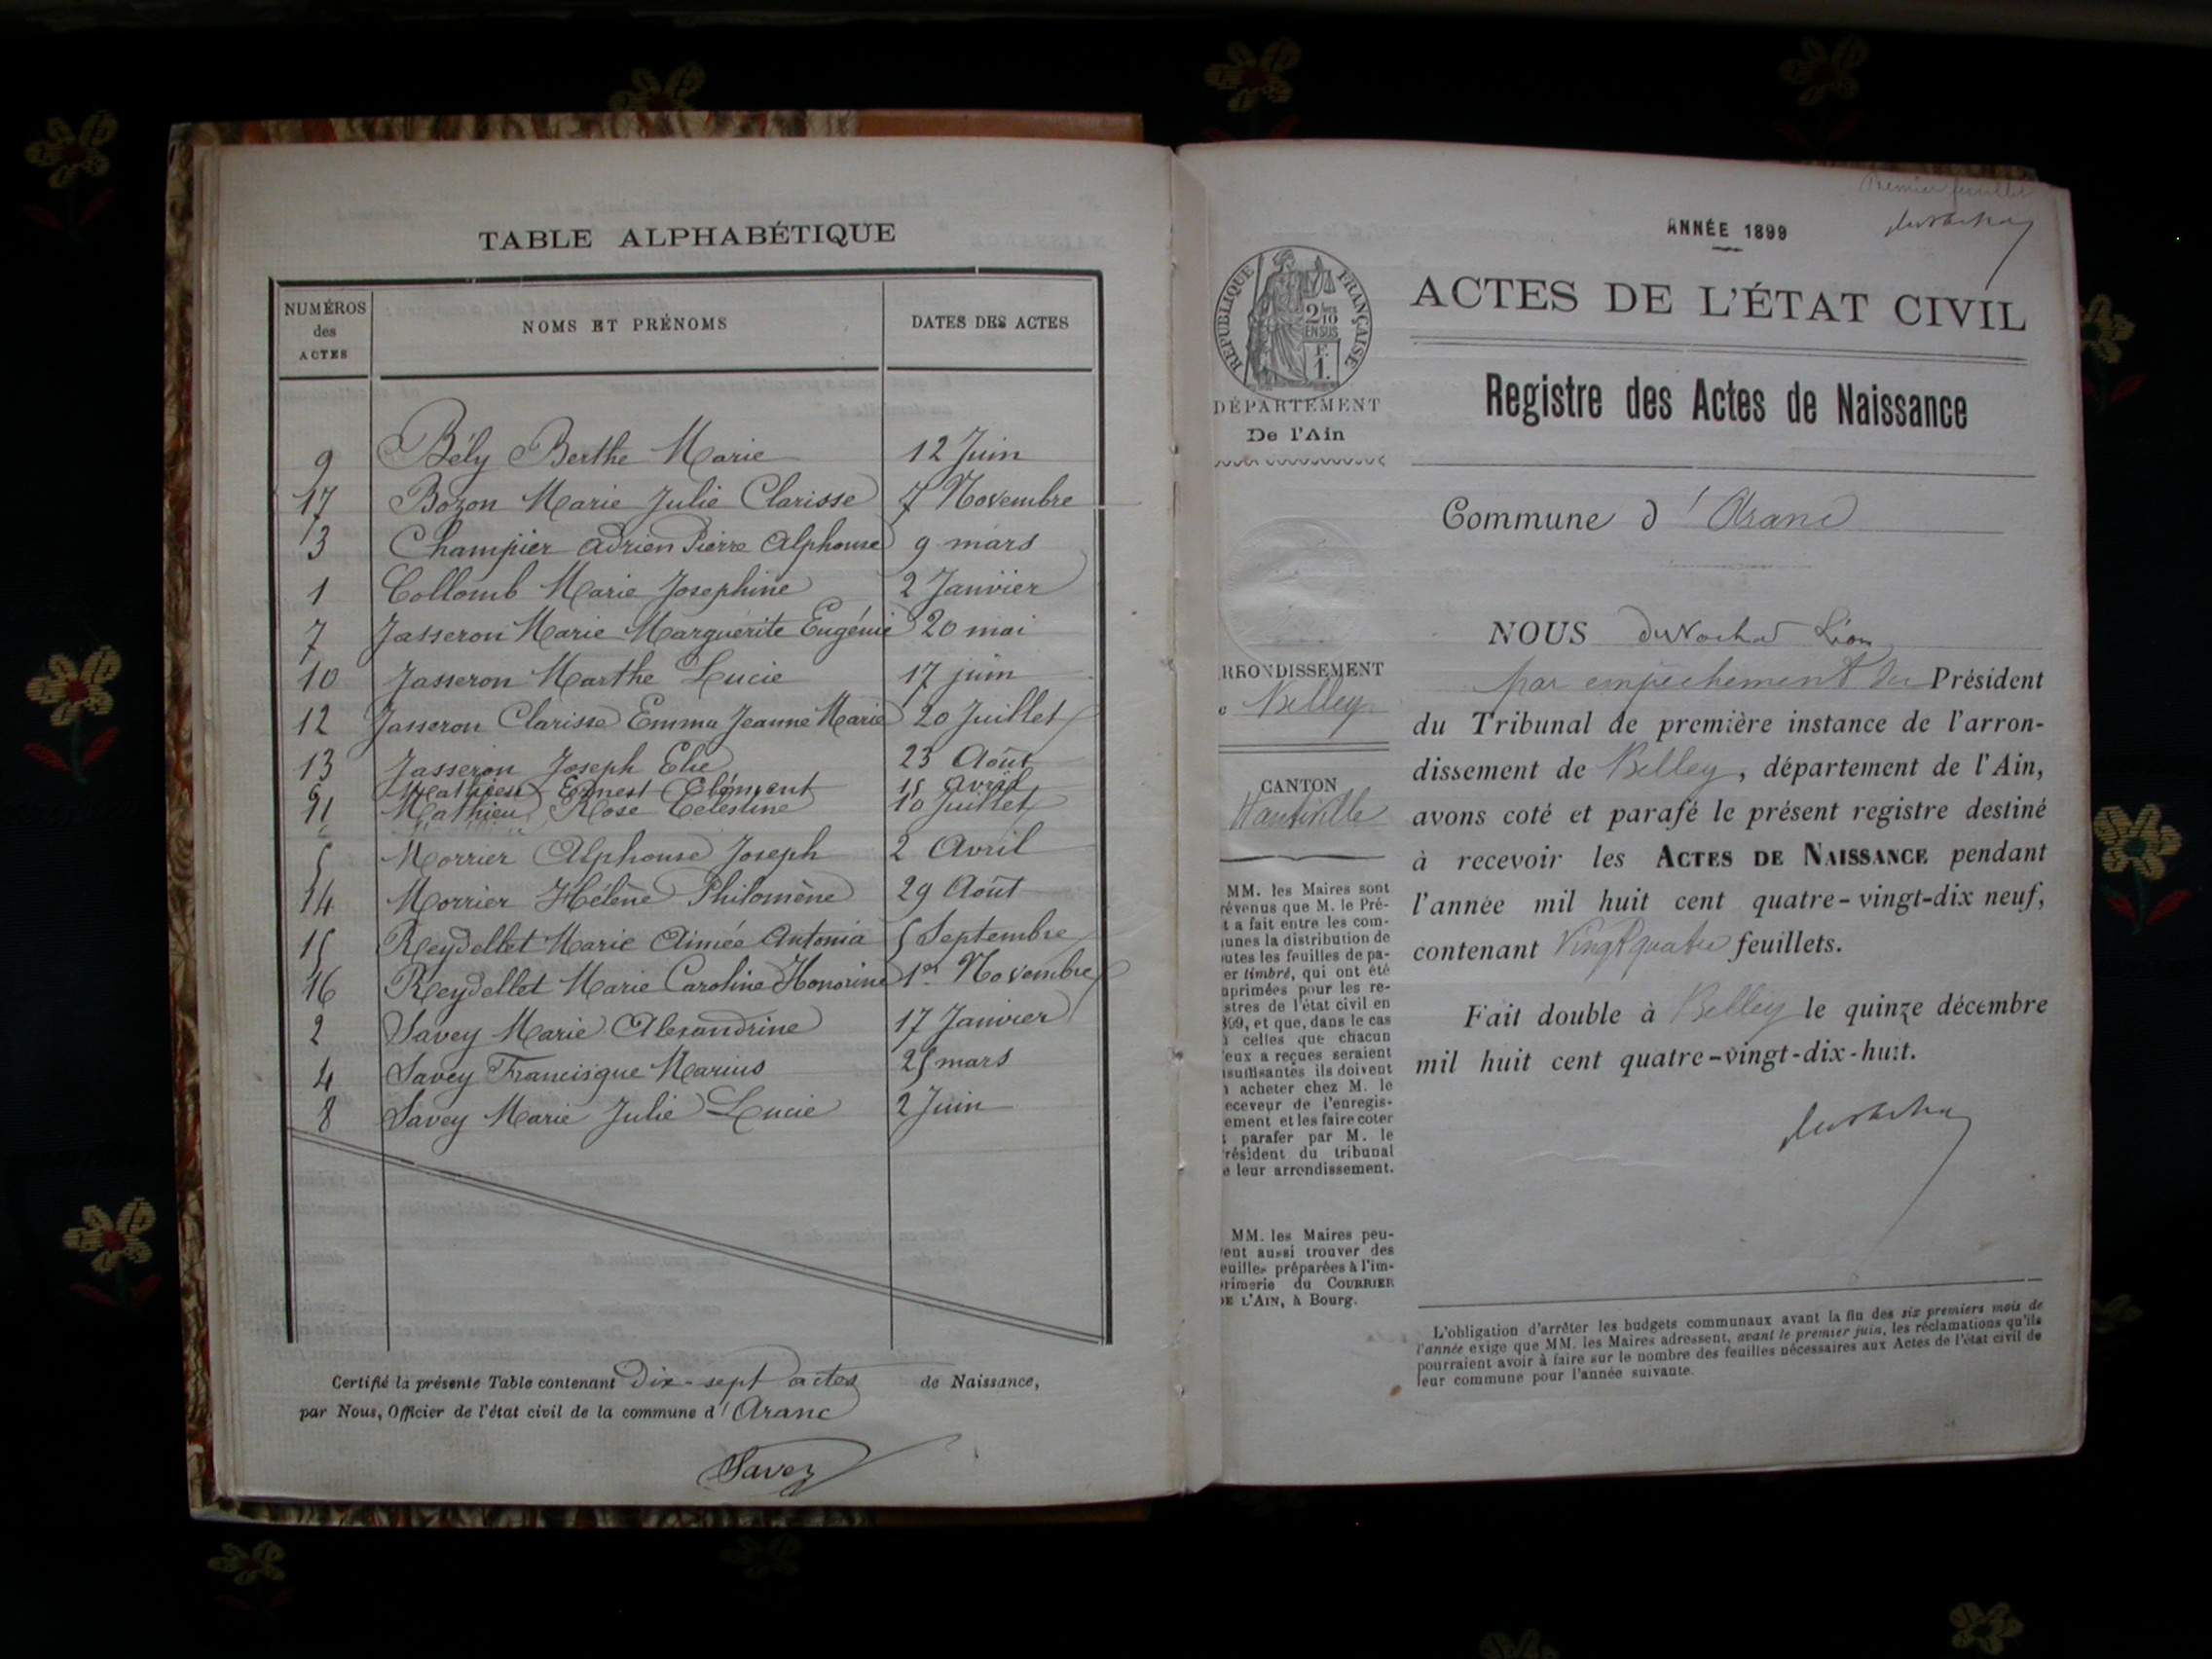 TABLE ALPHABÉTIQUE
NUMÉROS des ACTES
NOMS ET PRÉNOMS
DATES DES ACTES
9 Bély Berthe Marie 12 Juin
17 Bozon Marie Julie Clarisse 7 Novembre
3 Champier Adrien Pierre Alphonse 9 mars
1 Collomb Marie Josephine 2 Janvier
7 Jasseron Marie Marguerite Eugénie 20 mai
10 Jasseron Marthe Lucie 17 juin
12 Jasseron Clarisse Emma Jeanne Marie 20 Juillet
13 Jasseron Joseph Elie 23 Août
6 Mathieu Ernest Clément 15 avril
11 Mathieu Rose Celestine 10 Juillet
5 Morrier Alphonse Joseph 2 Avril
14 Morrier Hélène Philomène 29 Août
15 Reydellet Marie Aimée Antonia 5 Septembre
16 Reydellet Marie Caroline Honorine 1er Novembre
2 Savey Marie Alexandrine 17 Janvier
4 Savey Francisque Marius 25 mars
8 Savey Marie Julie Lucie 2 Juin
Certifié la présente Table contenant Dix-sept actes de Naissance,
par Nous, Officier de l'état civil de la commune d'Aranc
Savey
Premier feuillet
ANNÉE 1899
RÉPUBLIQUE FRANÇAISE
2/10 EN SUS
F. 1.
ACTES DE L'ÉTAT CIVIL
Registre des Actes de Naissance
DÉPARTEMENT
De l'Ain
Commune d'Aranc
RRONDISSEMENT
e Belley
CANTON
Hauteville
MM. les Maires sont
révenus que M. le Pré-
t a fait entre les com-
unes la distribution de
utes les feuilles de pa-
er timbré, qui ont été
primées pour les re-
stres de l'état civil en
899, et que, dans le cas
ù celles que chacun
'eux a reçues seraient
nsuffisantes ils doivent
n acheter chez M. le
eceveur de l'enregis-
ement et les faire coter
t parafer par M. le
résident du tribunal
e leur arrondissement.
MM. les Maires peu-
ent aussi trouver des
euilles préparées à l'im-
rimerie du COURRIER
DE L'AIN, à Bourg.
NOUS Léon
par empêchement du Président
du Tribunal de première instance de l'arron-
dissement de Belley, département de l'Ain,
avons coté et parafé le présent registre destiné
à recevoir les ACTES DE NAISSANCE pendant
l'année mil huit cent quatre-vingt-dix neuf,
contenant Vingt quatre feuillets.
Fait double à Belley le quinze décembre
mil huit cent quatre-vingt-dix-huit.
L'obligation d'arrêter les budgets communaux avant la fin des six premiers mois de
l'année exige que MM. les Maires adressent, avant le premier juin, les réclamations qu'ils
pourraient avoir à faire sur le nombre des feuilles nécessaires aux Actes de l'état civil de
leur commune pour l'année suivante.